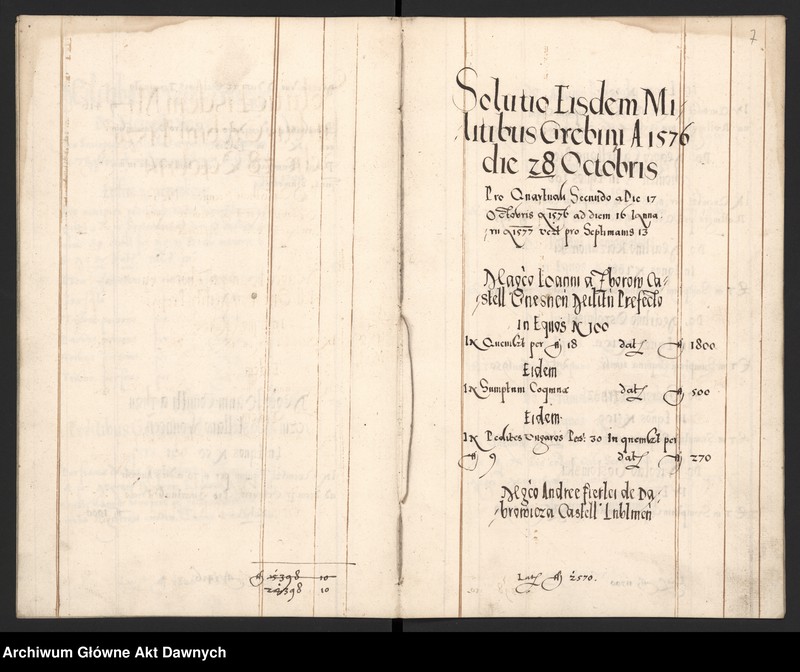 fl 15398 10
22398 10
7
Solutio Eisdem Mi
litibus Grebini A 1576
die 28 Octobris
Pro Quartuali Secundo a Die 17
Octobris a 1576 ad diem 16 Janua.
rii a 1577 pro Septimanis 13
Mag͠co Joanni a Zborow Ca-
stell Gnesnen Prefecto
in Equos N 100
In per fl 18 dat fl 1800
Eidem
In Sumptum Coquinæ dat fl 500
Eidem
In Pedites Ungaros Pers: 30 In per
fl 9 dat fl 270
Andree Fierlei de Da-
browicza Castell Lublinen
Lat fl 2570.
Archiwum Główne Akt Dawnych